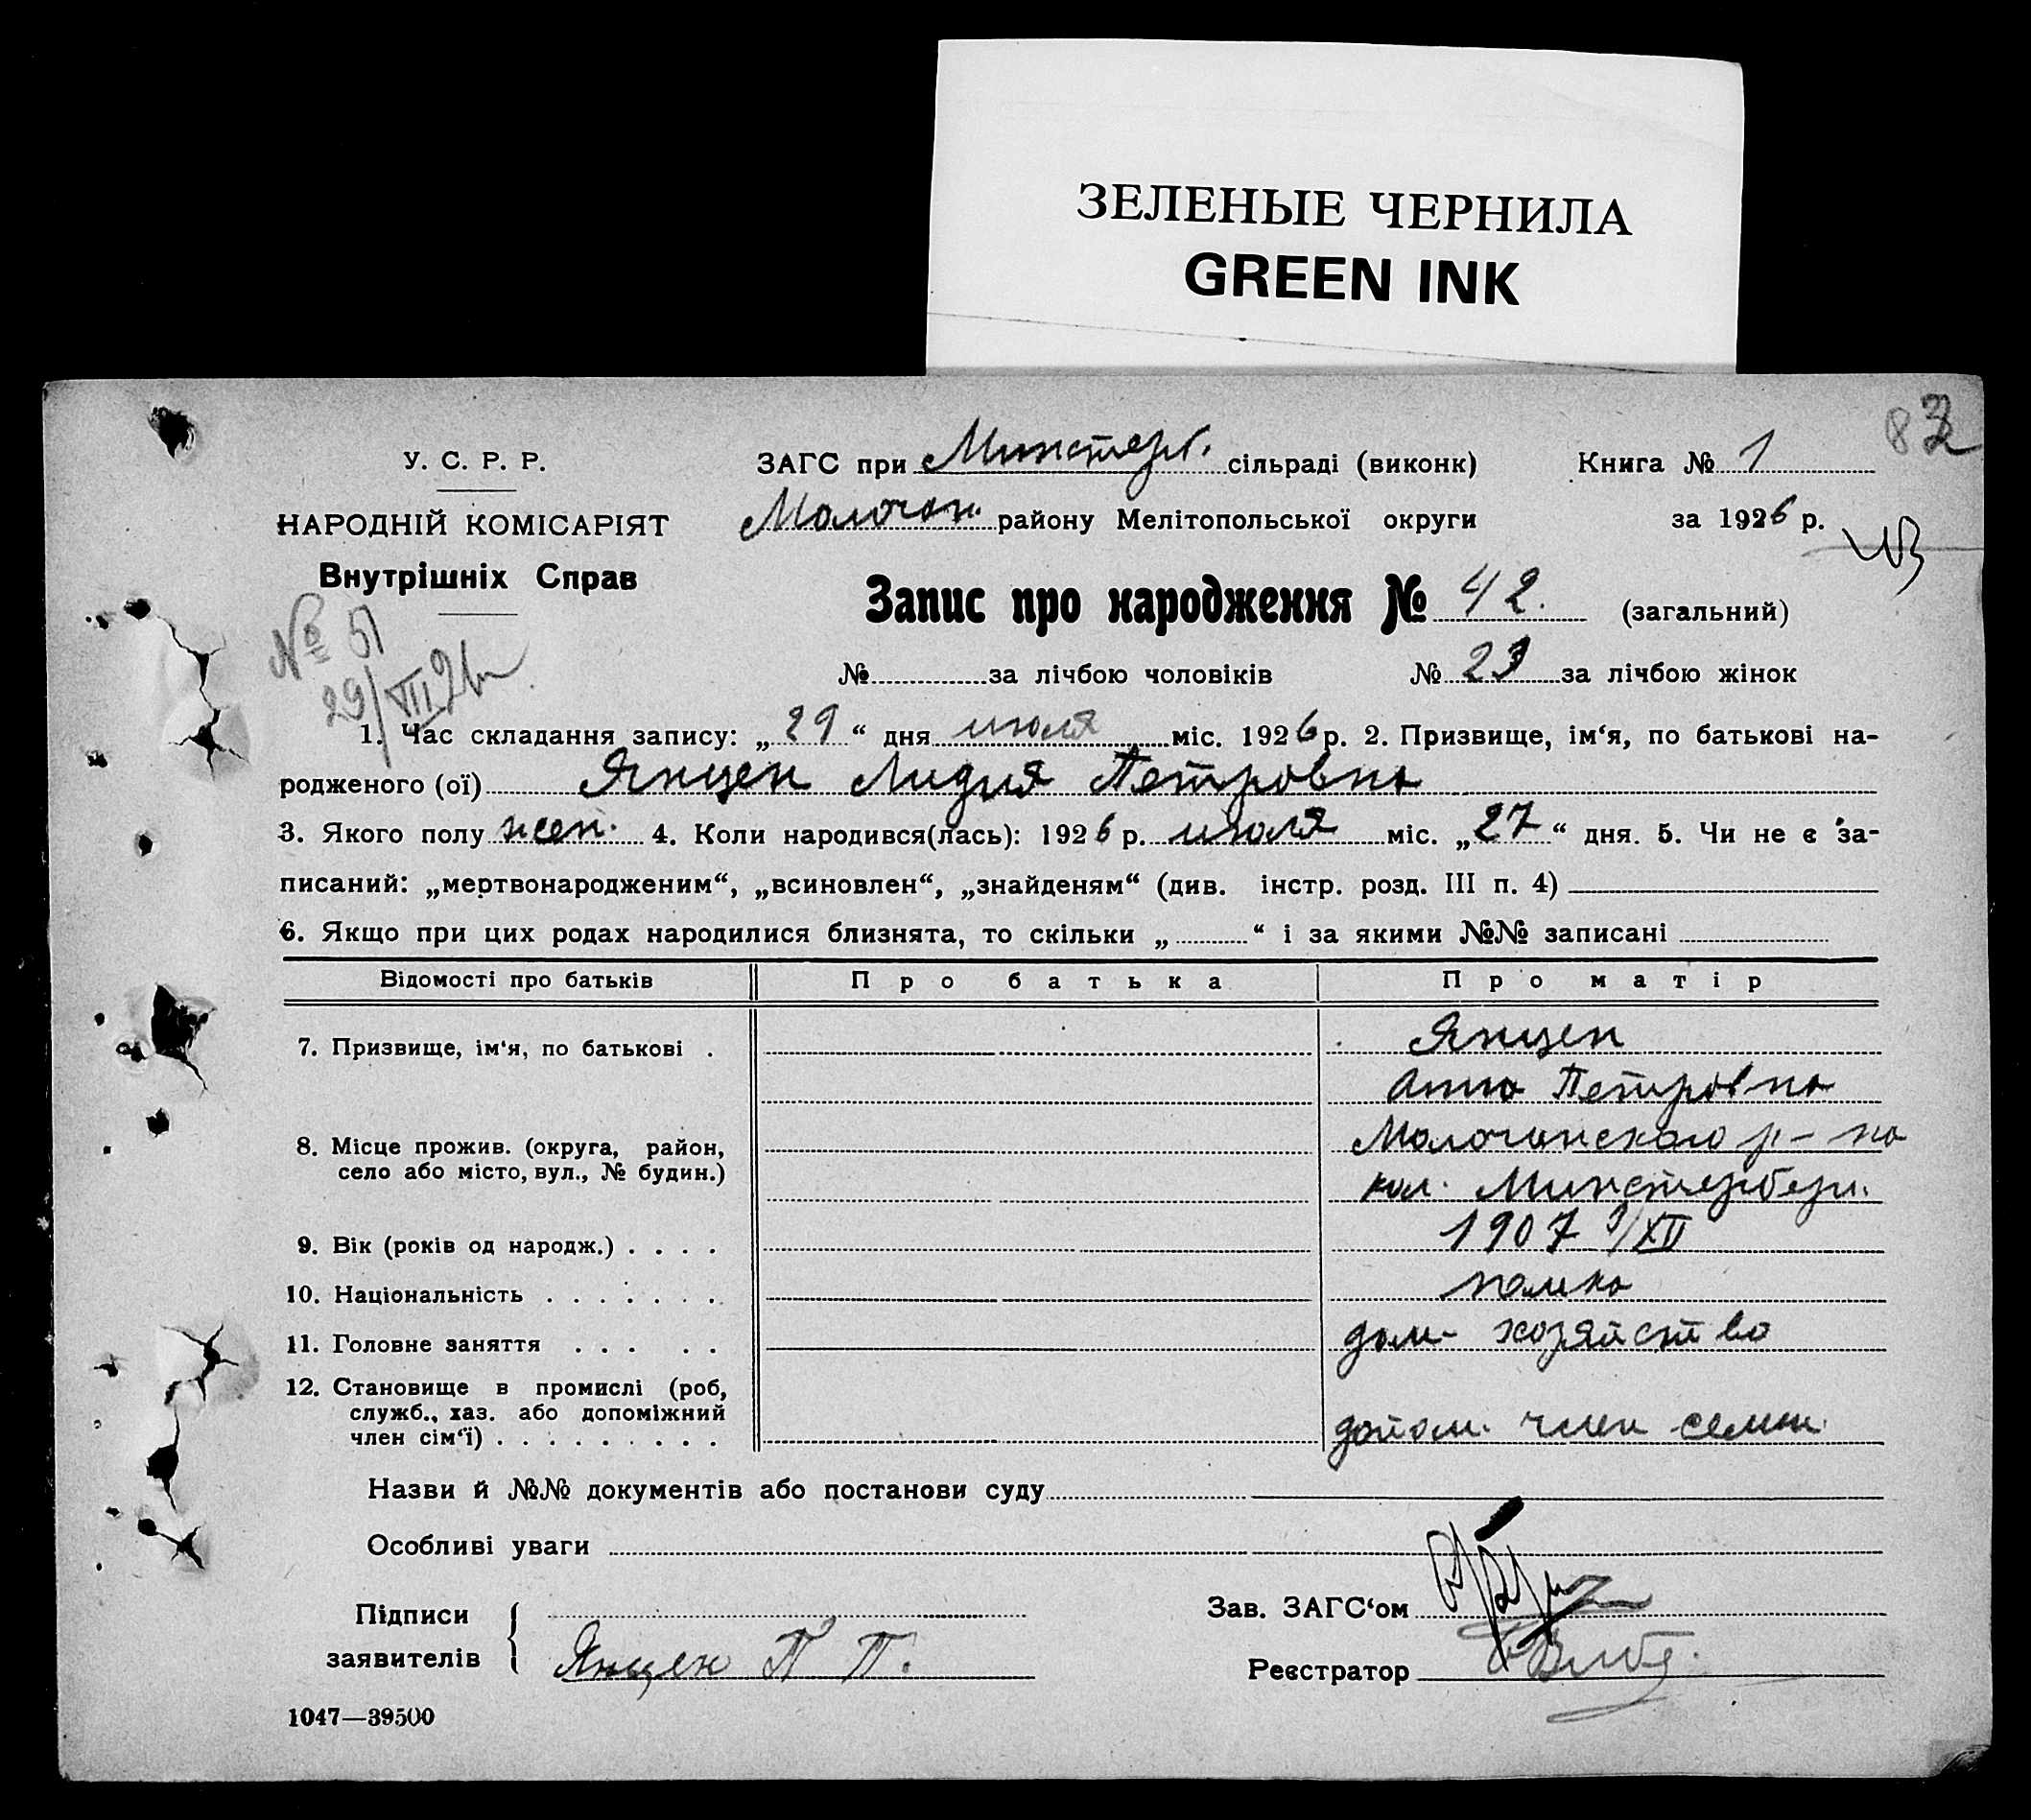 ЗЕЛЕНЫЕ ЧЕРНИЛА
GREEN INK
У. С. Р. Р.
НАРОДНІЙ КОМІСАРІЯТ
Внутрішніх Справ
№ 51
29/VII 26
ЗАГС при Минстерб. сільраді (виконк)
Книга № 1
Молочан. району Мелітопольської округи
за 1926 р.
Запис про народження № 42. (загальний)
№ за лічбою чоловіків № 23 за лічбою жінок
1. Час складання запису: „ 29 “ дня июля міс. 1926 р. 2. Призвище, ім‘я, по батькові на-
родженого (ої) Янцен Лидия Петровна
3. Якого полу жен. 4. Коли народився(лась): 1926 р. июля міс. „ 27 “ дня. 5. Чи не є за-
писаний: „мертвонародженим“, „всиновлен“, „знайденям“ (див. інстр. розд. III п. 4)
6. Якщо при цих родах народилися близнята, то скільки „ “ і за якими №№ записані
Відомості про батьків Про батька Про матір
7. Призвище, ім‘я, по батькові . Янцен
Анна Петровна
8. Місце прожив. (округа, район, Молочанского р-на
село або місто, вул., № будин.)
кол. Минстерберг.
9. Вік (років од народж.) . . . . 1907 9/XII
10. Національність . . . . . . . немка
11. Головне заняття . . . . . дом- хозяйство
12. Становище в промислі (роб,
служб., хаз. або допоміжний
член сім‘ї) . . . . . . . . . допом. член семьи.
Назви й №№ документів або постанови суду
Особливі уваги
Підписи
заявителів
Янцен П П.
Зав. ЗАГС‘ом
Реєстратор
1047—39500